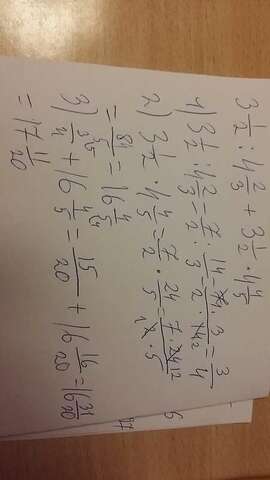 3 1/2 : 4 2/3 + 3 1/2 · 4 4/5
1) 3 1/2 : 4 2/3 = 7/2 : 14/3 = 7 · 3 / 2 · 14 2 = 3/4
2) 3 1/2 · 4 4/5 = 7/2 · 24/5 = 7 · 24 12 / 1 2 · 5
= 84/5 = 16 4/5
3) 3/4 + 16 4/5 = 15/20 + 16 16/20 = 16 31/20
= 17 11/20